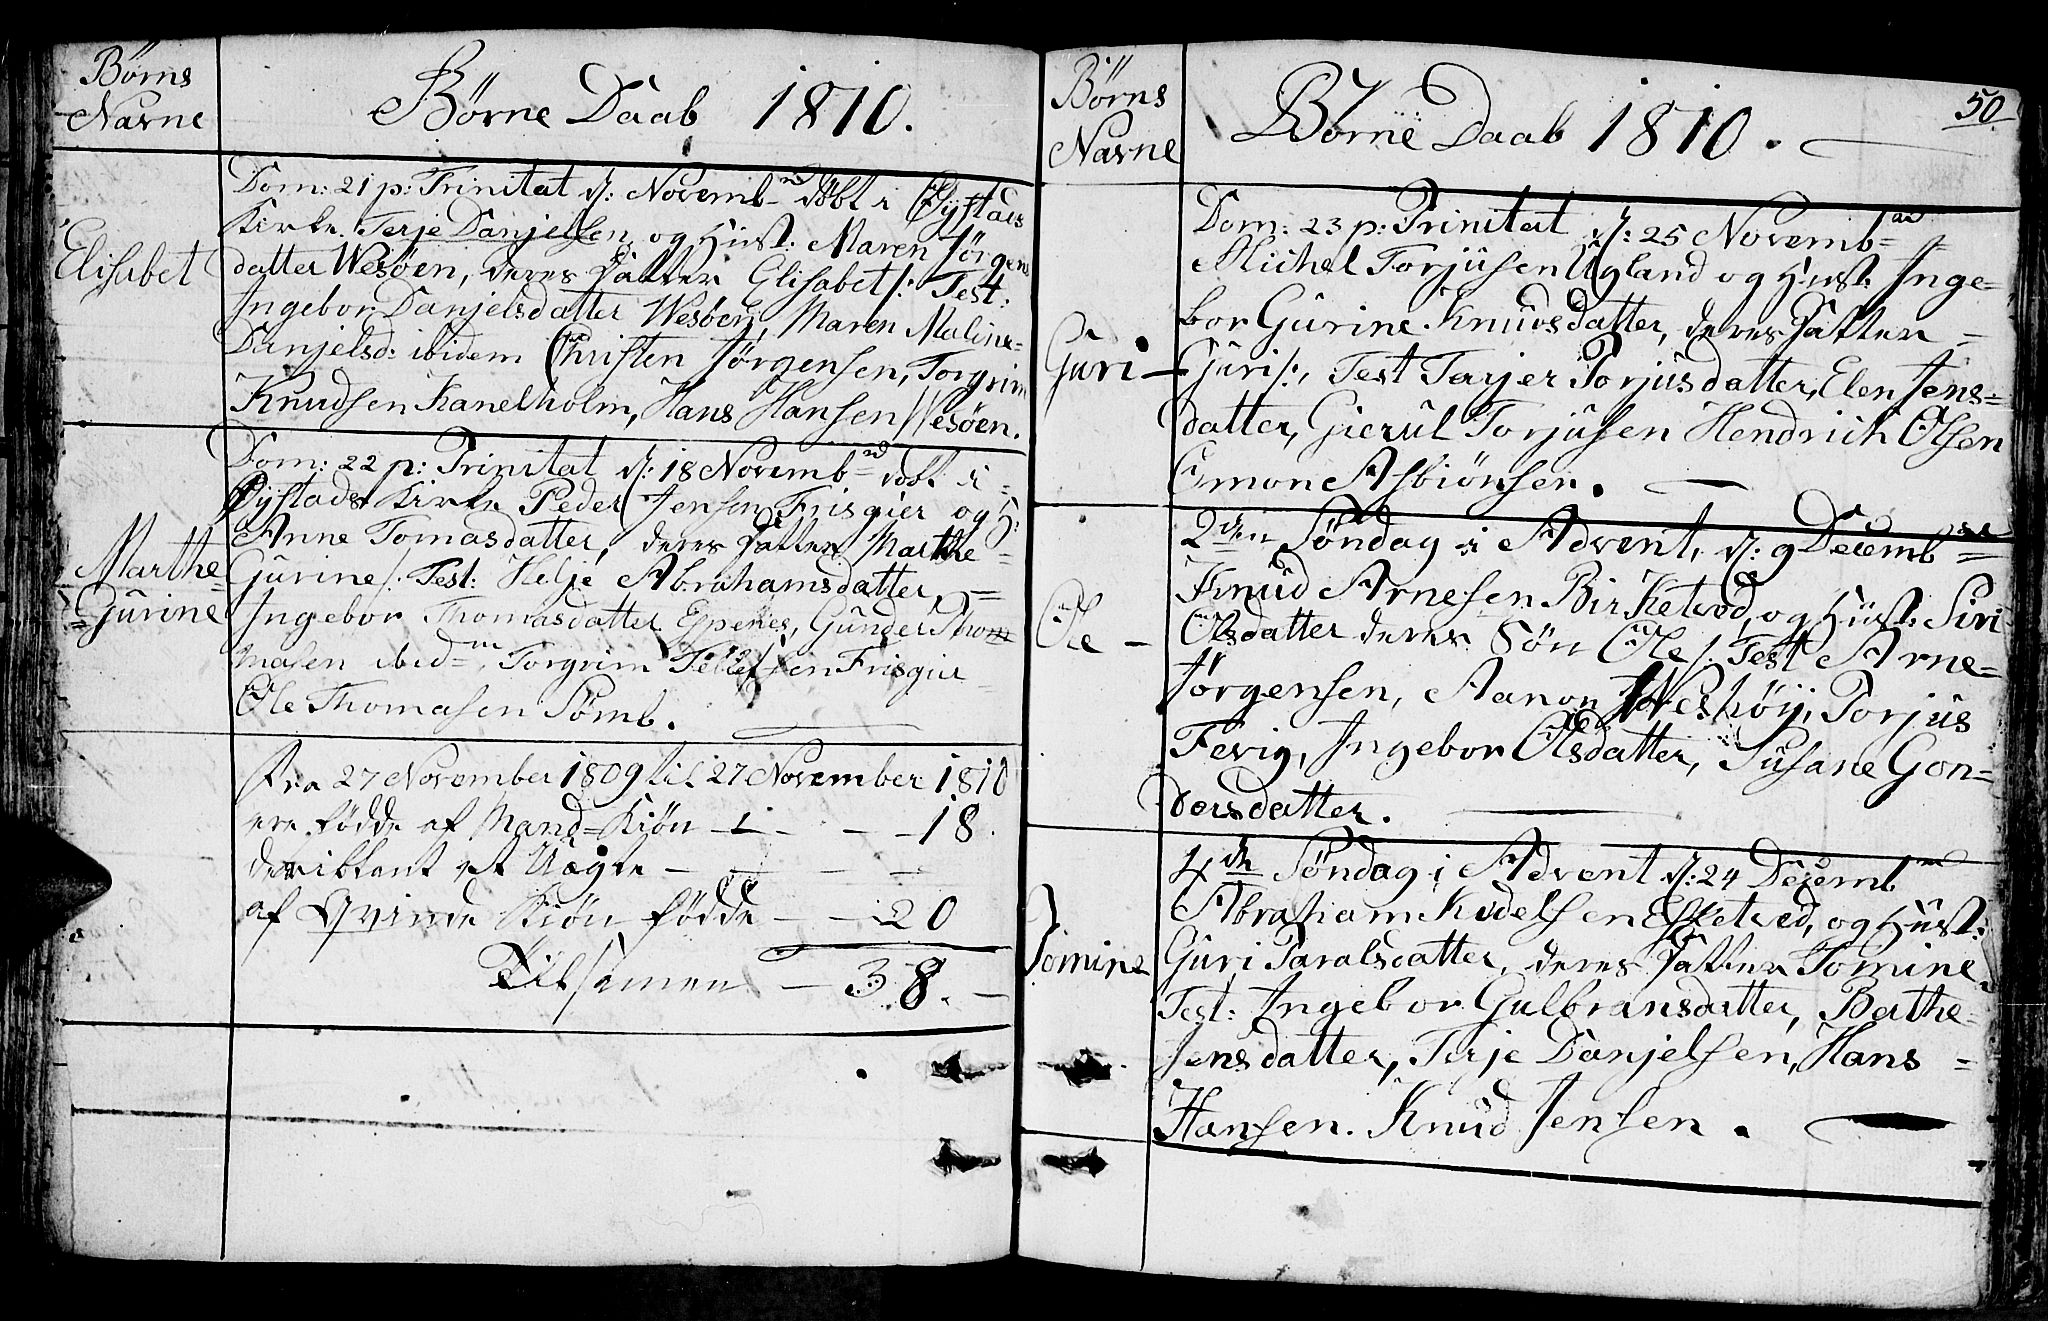 Børns
Navne
Børne Daab 1810.
Elisabet
Dom: 21 p: Trinitat d: Novemb døbt i Øystads
Kirke. Terje Danjelsen og Hust: Maren Jørgens
datter Wesøen, deres Datter Elisabet /: Test:
Ingebor Danjelsdatter Wesøen, Maren Maline
Danjelsd: ibidem Christen Jørgensen, Torgrim
Knudsen Kanelholm, Hans Hansen Wesøen.
Marthe
Gurine
Dom: 22 p: Trinitat d: 18 Novemb døbt i
Øystads Kirke Peder Jensen Frisgier og H:
Anne Tomasdatter, deres Datter Marthe
Gurine /: Test: Helje Abrahamsdatter
Ingebor Thomasdatter Espenes, Gunder Tho
masen ibid Torgrim Frisgier
Ole Thomasen Sømb.
fra 27 November 1809 til 27 November 1810
ere fødde af Mand-Kiøn - - - 18.
deriblant et Uægte - - -
af Qvinde Kiøn fødde - - 20
Tilsamen - 38. -
Børns
Navne
Børne Daab 1810. 50.
Guri
Dom: 23 p: Trinitat d: 25 Novemb
Michel Torjusen Ugland og Hust: Inge-
bor Gurine Knudsdatter, deres Datter
Guri /:, Test Terjer Torjusdatter, Elen Jens-
datter, Gierul Torjusen Hendrich Olsen
Omon Asbiønsen.
Ole
2den Søndag i Advent, d: 9 Decemb
Knud Arnesen Birketved, og Hust: Siri
Olsdatter deres Søn Ole /. Test Arne
Jørgensen, Aanon Weshøy, Torjus
Fevig, Ingebor Olsdatter, Susane Gon-
dersdatter.
Tomine
4de Søndag i Advent d: 24 Decemb
Abraham Kidelsen Esketved, og Hust:
Guri Taralsdatter, deres Datter Tomine
Test: Ingebor Gulbransdatter, Berthe
Jensdatter, Terje Danjelsen, Hans
Hansen. Knud Jensen.